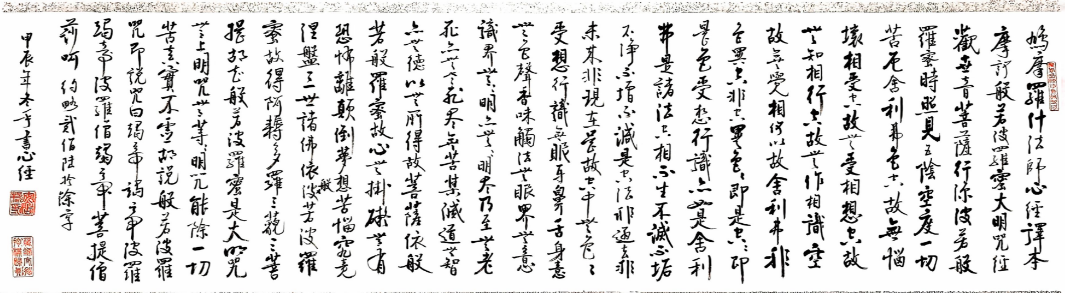 鳩摩羅什法師心經譯本
摩訶般若波羅蜜大明咒經
觀世音菩薩行深波若般
羅蜜時照見五陰空度一切
苦厄舍利弗色空故無惱
壞相受空故無受相想空故
無知相行空故無作相識空
故無覺相何以故舍利弗非
色異空非空異色色即是空空即
是色受想行識亦如是舍利
弗是諸法空相不生不滅不垢
不淨不增不減是空法非過去非
未來非現在是故空中無色無
受想行識無眼耳鼻舌身意
無色聲香味觸法無眼界無意
識界無無明亦無無明盡乃至無老
死亦無老死盡無苦集滅道無智
亦無德以無所得故菩薩依般
若般羅蜜故心無掛礙無有
恐怖離顛倒夢想苦惱究竟
涅盤三世諸佛依般若波羅
蜜故得阿耨多羅三藐三菩
提故知般若波羅蜜是大明咒
無上明咒無等等明咒能除一切
苦真實不虛故說般若波羅
咒即說咒曰竭帝竭帝波羅
竭帝波羅僧竭帝菩提僧
莎呵 約略貳佰陸拾餘字
甲辰年冬書心經